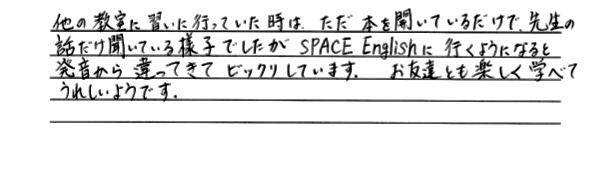 他の教室に習いに行っていた時は、ただ本を開いているだけで、先生の
話だけ聞いている様子でしたが SPACE Englishに行くようになると
発音から違ってきてビックリしています。 お友達とも楽しく学べて
うれしいようです。